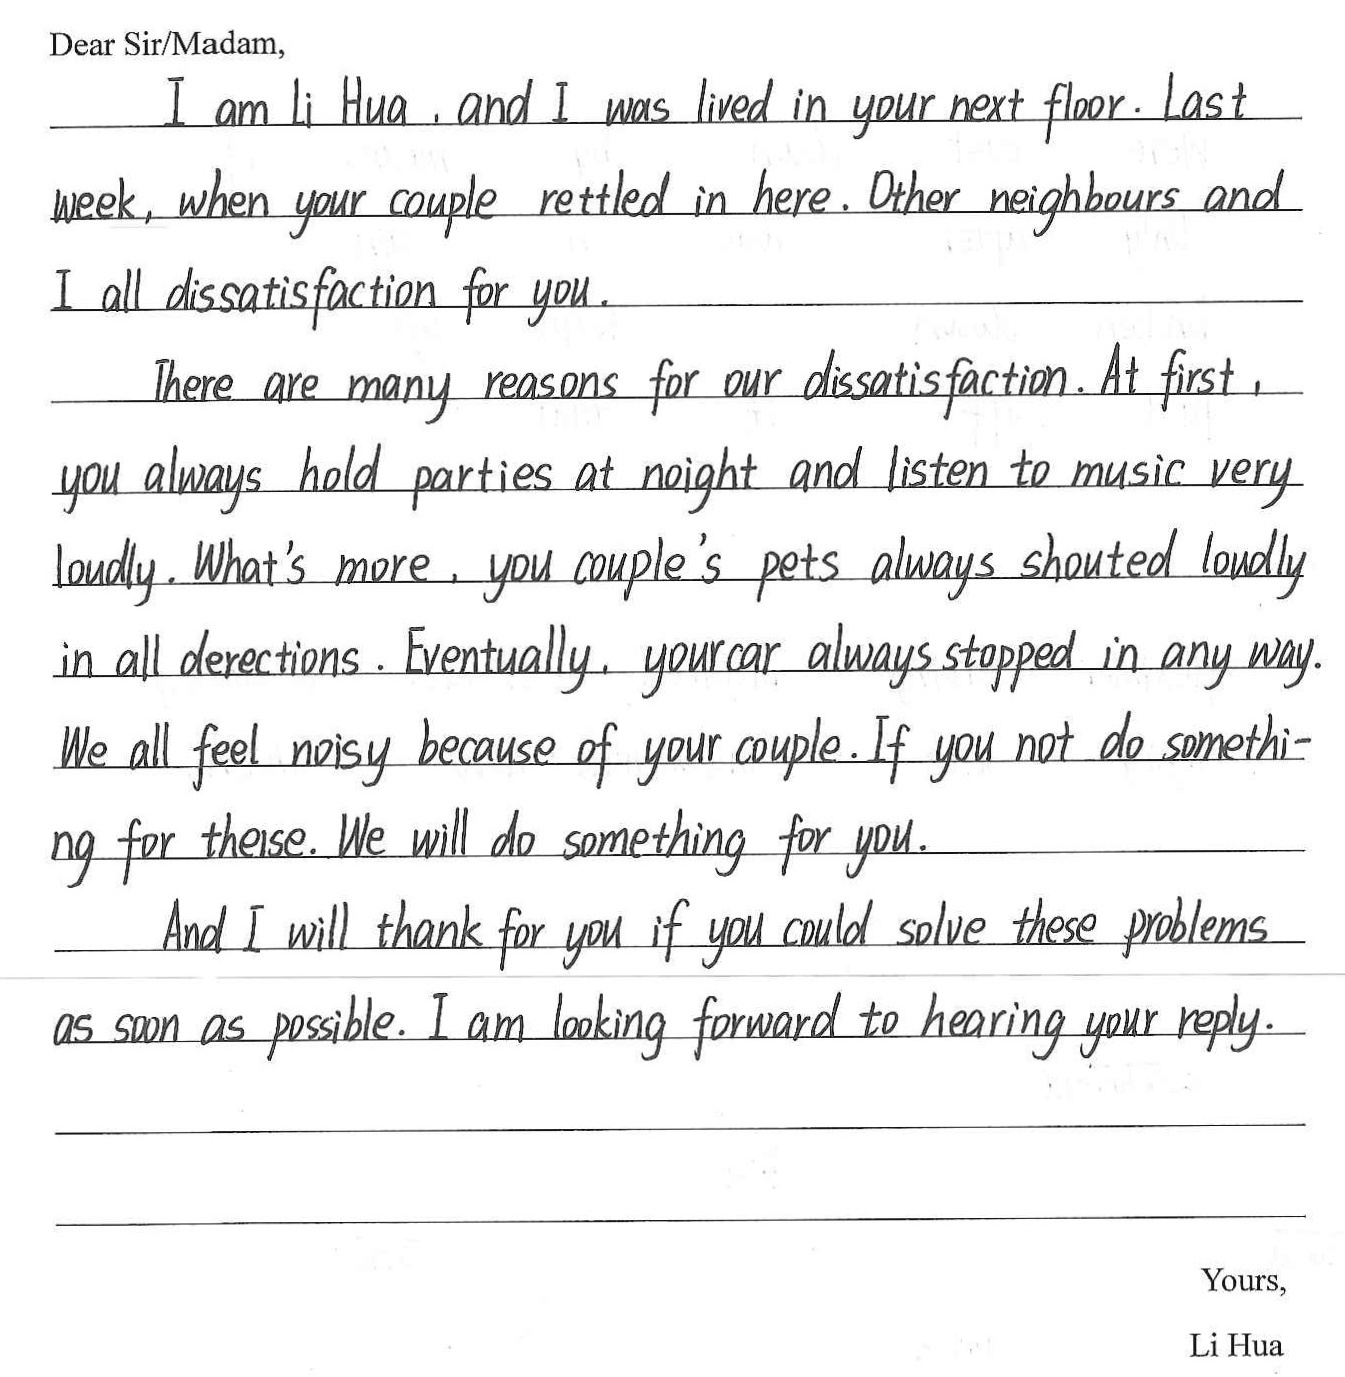 Dear Sir/Madam,
I am Li Hua, and I was lived in your next floor. Last
week, when your couple rettled in here. Other neighbours and
I all dissatisfaction for you.
There are many reasons for our dissatisfaction. At first,
you always hold parties at noight and listen to music very
loudly. What's more, you couple's pets always shouted loudly
in all derections. Eventually, your car always stopped in any way.
We all feel noisy because of your couple. If you not do somethi-
ng for theise. We will do something for you.
And I will thank for you if you could solve these problems
as soon as possible. I am looking forward to hearing your reply.
Yours,
Li Hua